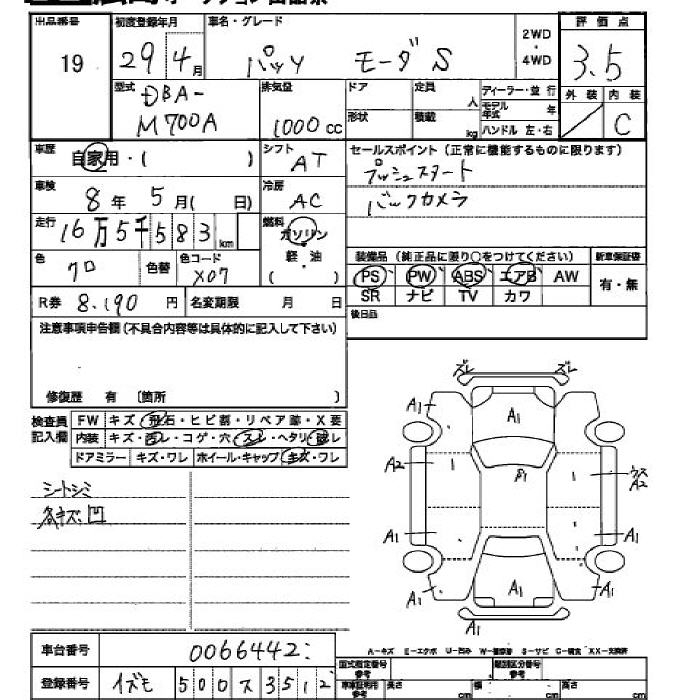 出品番号 初度登録年月 車名・グレード 2WD・4WD 評価点
19 29 4月 パッソ モーダ S 3.5
型式 排気量 ドア 定員 人 ディーラー・並行 外装 内装
DBA-M700A 1000cc 形状 積載 kg モデル年式 年 C
ハンドル 左・右
車歴 自家用・( ) シフト AT セールスポイント(正常に機能するものに限ります)
プッシュスタート
車検 8年 5月( 日) 冷房 AC バックカメラ
走行 16万5千583km 燃料 ガソリン
軽・油
( )
色 クロ 色替 色コード X07
装備品(純正品に限り○をつけてください) 新車保証書
PS PW ABS エアB AW 有・無
SR ナビ TV カワ
R券 8,190円 名変期限 月 日
後日品
注意事項申告欄(不具合内容等は具体的に記入して下さい)
修復歴 有 〔箇所 〕
検査員記入欄 FW キズ・飛石・ヒビ割・リペア跡・X要
内装 キズ・凹レ・コゲ・穴・スレ・ヘタリ・破レ
ドアミラー キズ・ワレ ホイール・キャップ キズ・ワレ
シートシミ
各キズ凹
ズレ ズレ
A1 A1 A1
A2 A1 ウス A2
A1 A1
A1 A1 A1
A1
A-キズ E-エクボ U-凹み W-補修跡 S-サビ C-腐食 XX-交換済
車台番号 0066442
型式指定番号 参考 類別区分番号 参考
登録番号 イズモ 500ス3512
車庫証明用 参考 長さ cm 幅 cm 高さ cm